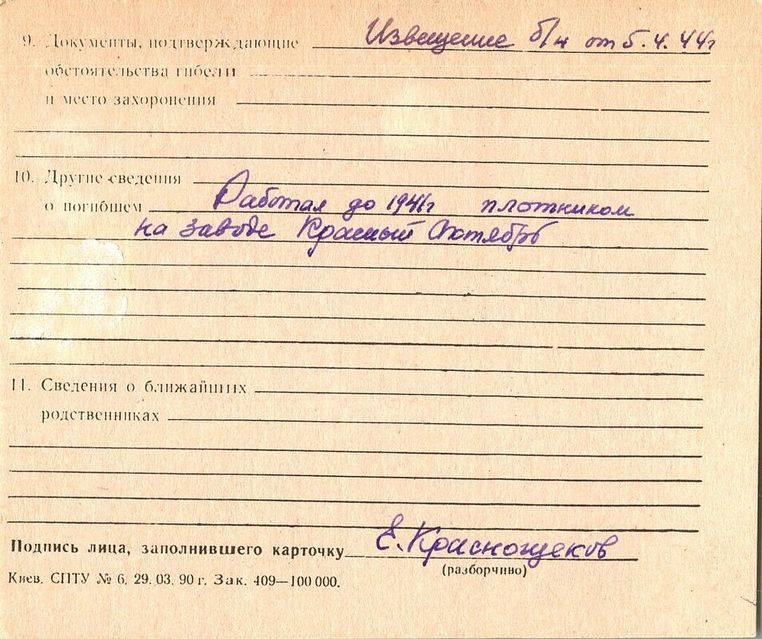 9. Документы, подтверждающие Извещение б/н от 5.4.44г
обстоятельства гибели
и место захоронения
10. Другие сведения
о погибшем Работал до 1941г плотником
на заводе Красный Октябрь
11. Сведения о ближайших
родственниках
Подпись лица, заполнившего карточку Е. Краснощеков
(разборчиво)
Киев. СПТУ № 6. 29. 03. 90 г. Зак. 409—100 000.